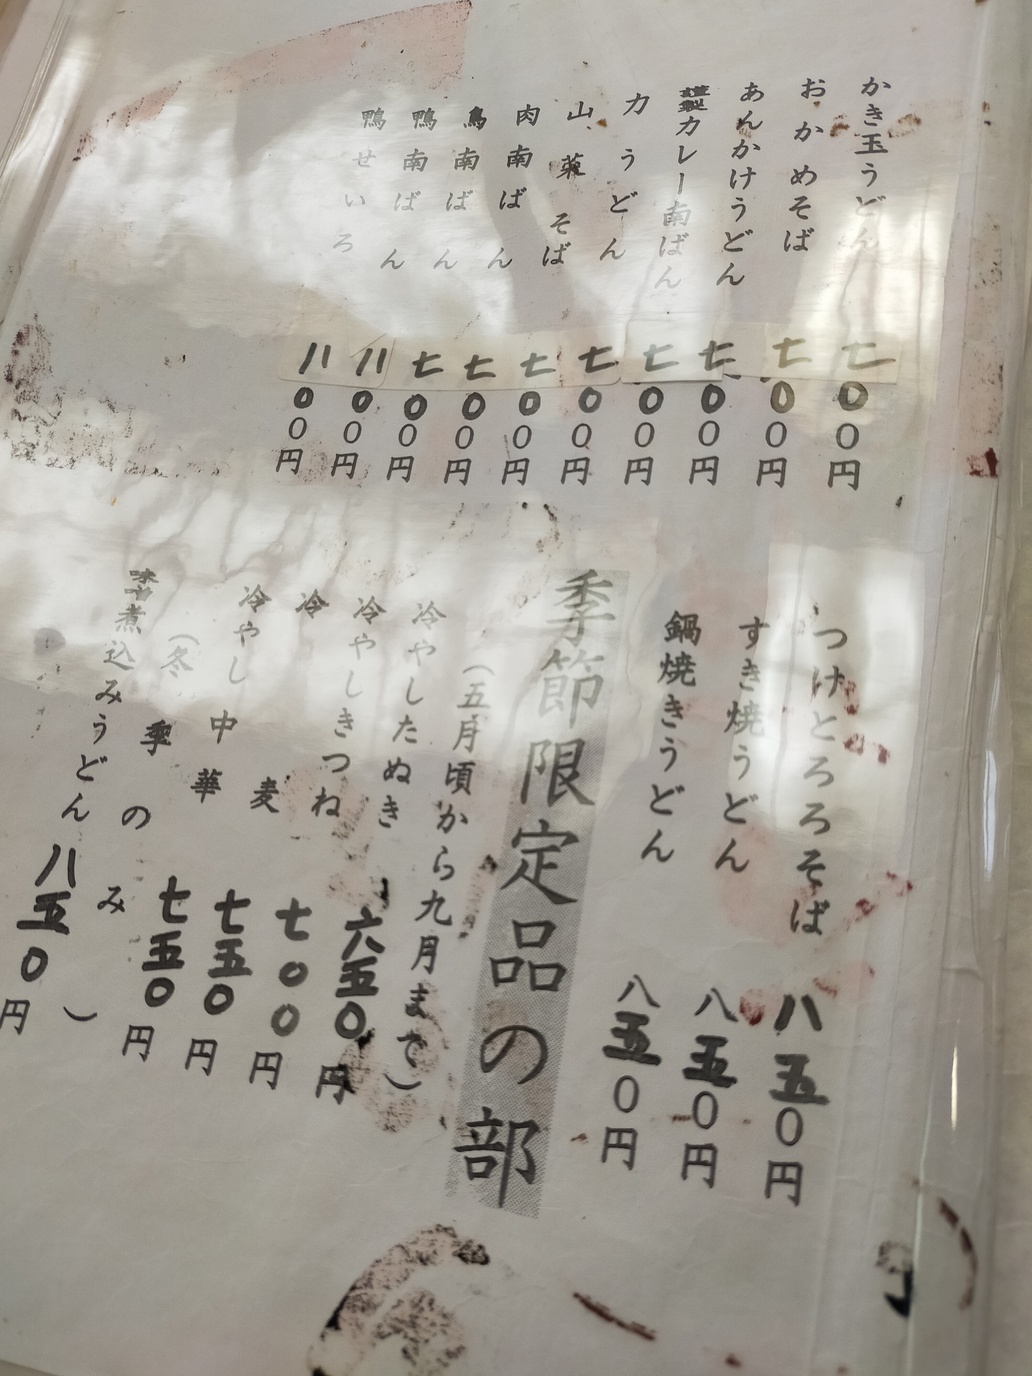 かき玉うどん 七〇〇円
おかめそば 七〇〇円
あんかけうどん 七〇〇円
謹製カレー南ばん 七〇〇円
力うどん 七〇〇円
山菜そば 七〇〇円
肉南ばん 七〇〇円
鳥南ばん 七〇〇円
鴨南ばん 八〇〇円
鴨せいろ 八〇〇円
つけとろろそば 八五〇円
すき焼うどん 八五〇円
鍋焼きうどん 八五〇円
季節限定品の部
（五月頃から九月まで）
冷やしたぬき 六五〇円
冷やしきつね 七〇〇円
冷麦 七五〇円
冷やし中華 七五〇円
（冬季のみ）
味噌煮込みうどん 八五〇円